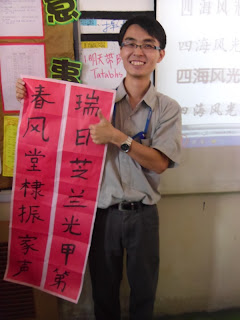 瑞日芝兰光甲第
春风堂棣振家声
意
事
四海风光
四海风光
四海风光
四海风光